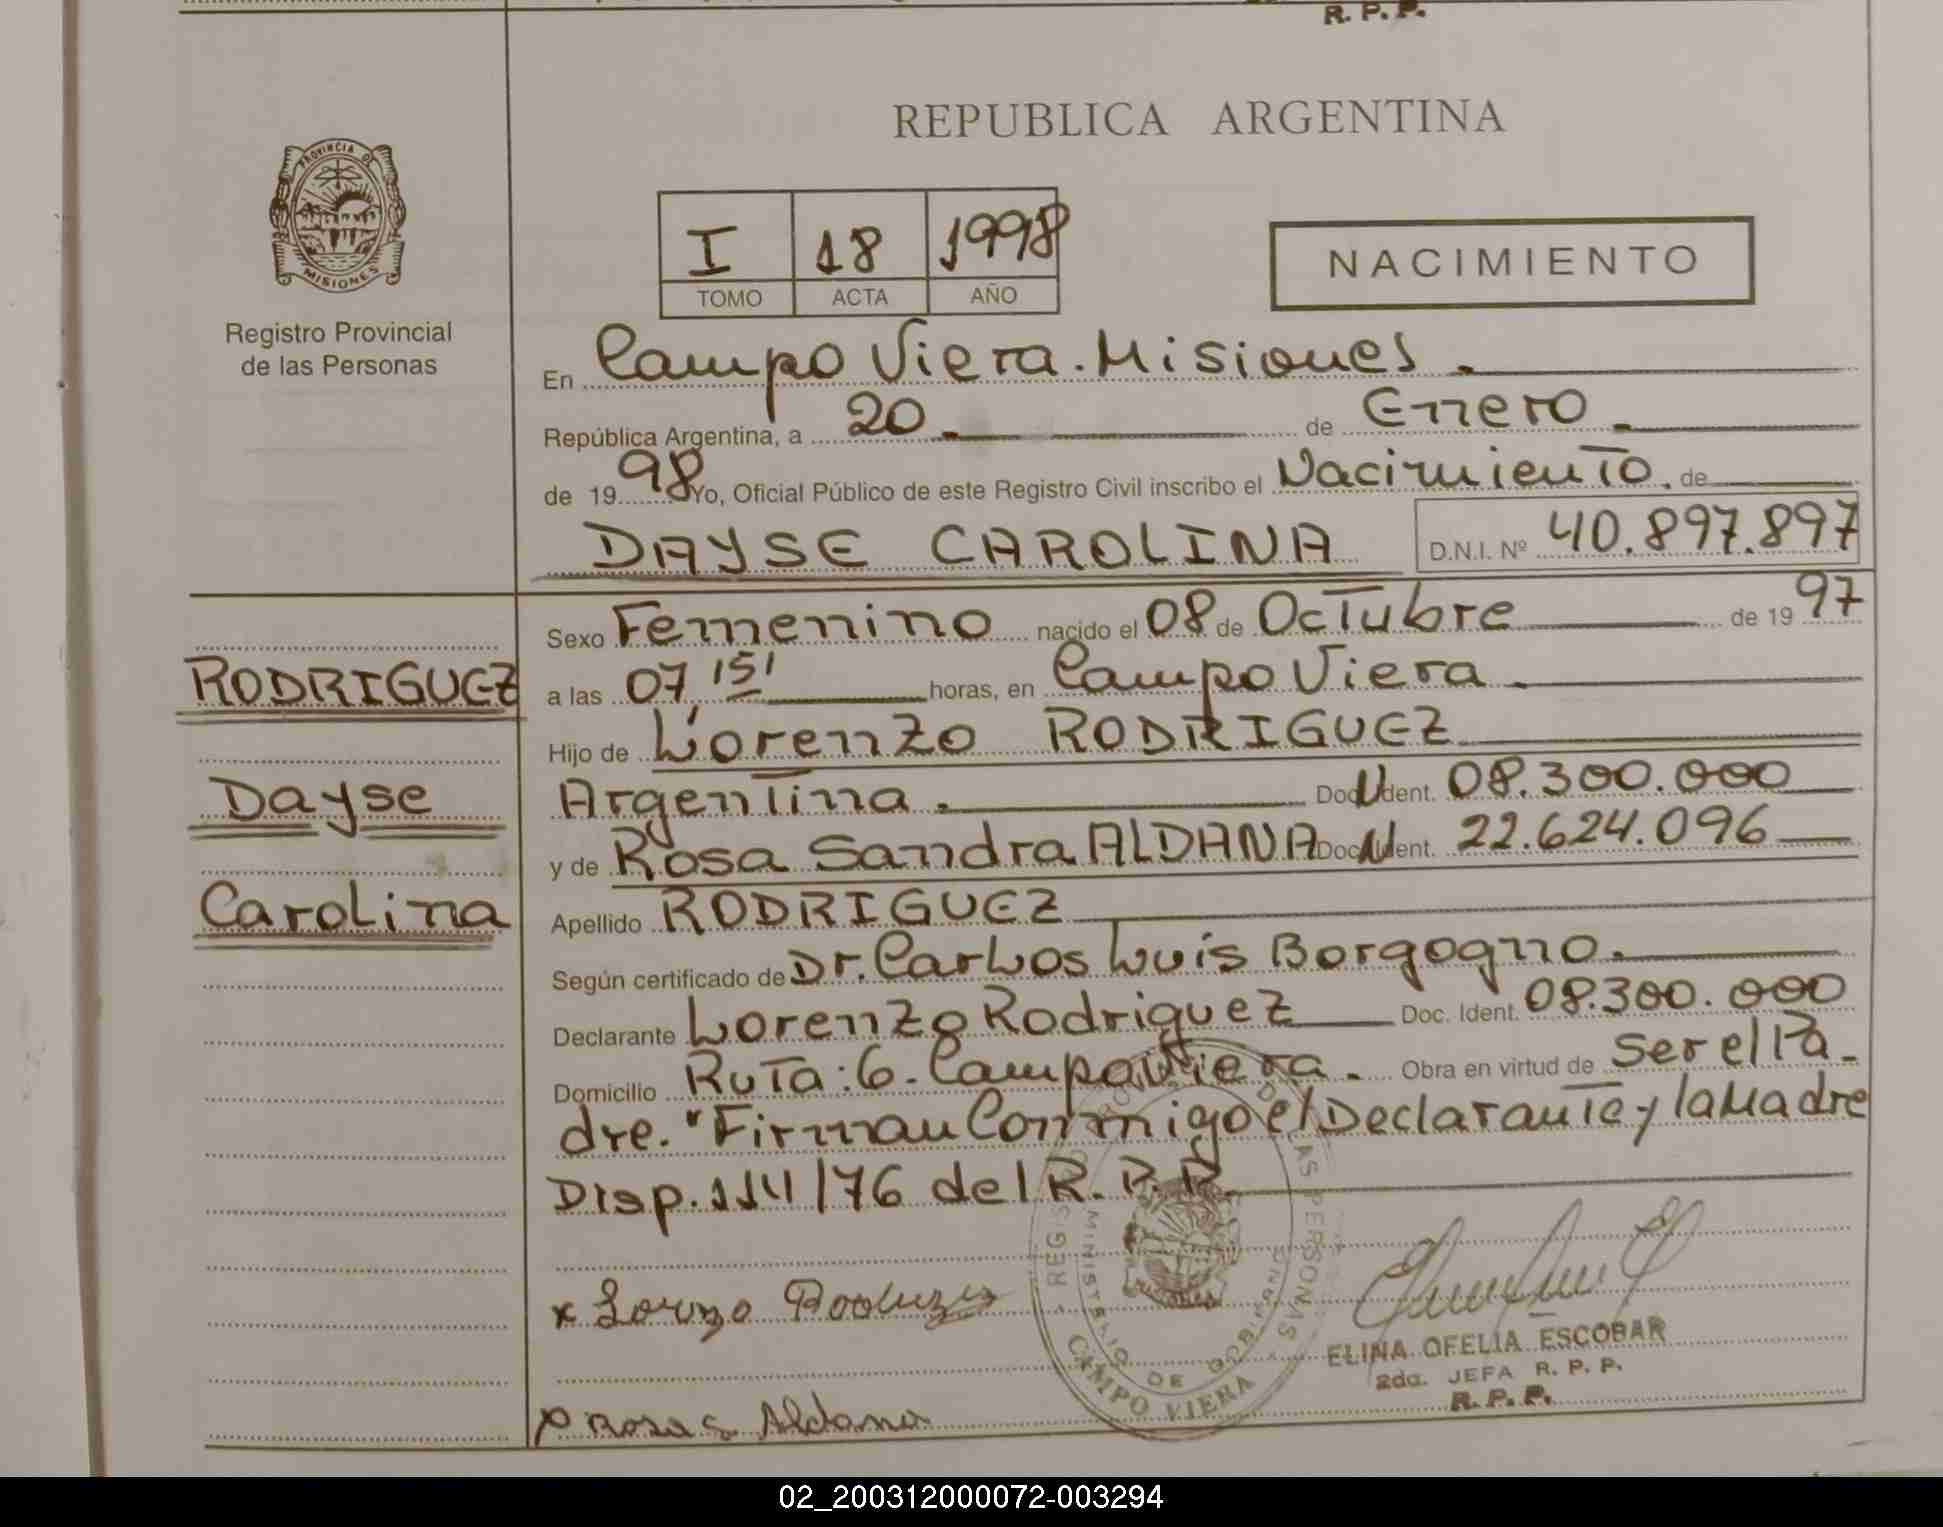 R. P. P.
REPUBLICA ARGENTINA
PROVINCIA DE
MISIONES
Registro Provincial
de las Personas
I 18 1998
TOMO ACTA AÑO
NACIMIENTO
En Campo Viera. Misiones.
República Argentina, a 20 de Enero
de 1998 Yo, Oficial Público de este Registro Civil inscribo el Nacimiento. de
DAYSE CAROLINA D.N.I. Nº 40.897.897
Sexo Femenino nacido el 08 de Octubre de 1997
RODRIGUEZ
a las 07,15' horas, en Campo Viera.
Hijo de Lorenzo RODRIGUEZ
Dayse
Argentina. Doc. Ident. 08.300.000
y de Rosa Sandra ALDANA Doc. Ident. 22.624.096
Carolina
Apellido RODRIGUEZ
Según certificado de Dr. Carlos Luis Borgogno.
Declarante Lorenzo Rodriguez Doc. Ident. 08.300.000
Domicilio Ruta: 6. Campo Viera. Obra en virtud de ser el Pa-
dre. "Firman Conmigo el Declarante y la Madre
Disp. 114/76 del R. P. P.
x Lorenzo Rodriguez
x Rosa S Aldana
MINISTERIO DE GOBIERNO
CAMPO VIERA
ELINA OFELIA ESCOBAR
2da. JEFA R. P. P.
R. P. P.
02_200312000072-003294